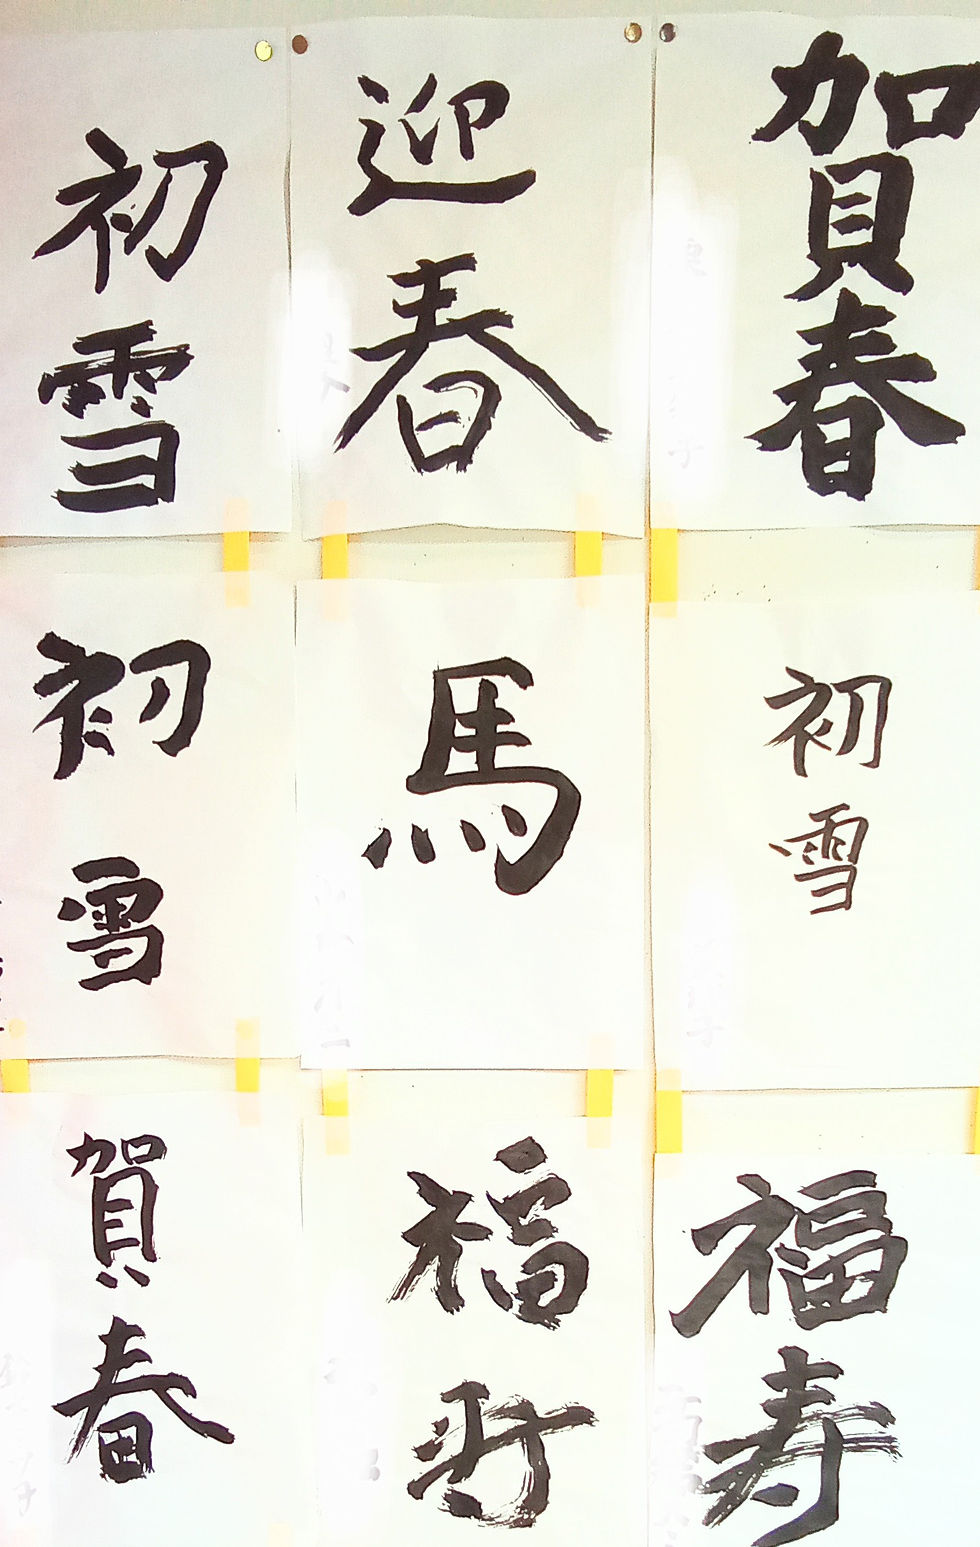 賀春
迎春
初雪
初雪
馬
初雪
福寿
福寿
賀春